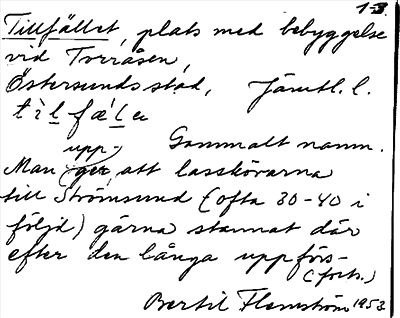 1-3.
Tillfället, plats med bebyggelse
vid Tvråsen,
Östersunds stad, Jämtl. l.
Gammalt namn.
Man uppger, att lasskörarna
till Strömsund (ofta 30-40 i
följd) gärna stannat där
efter den långa uppförs-
(forts.)
Bertil Flemström 1953